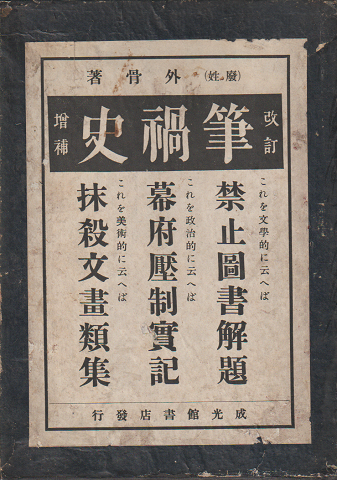 (廢姓)外骨著
改訂
筆禍史
增補
これを文學的に云へば
禁止圖書解題
これを政治的に云へば
幕府壓制實記
これを美術的に云へば
抹殺文畫類集
成光館書店發行